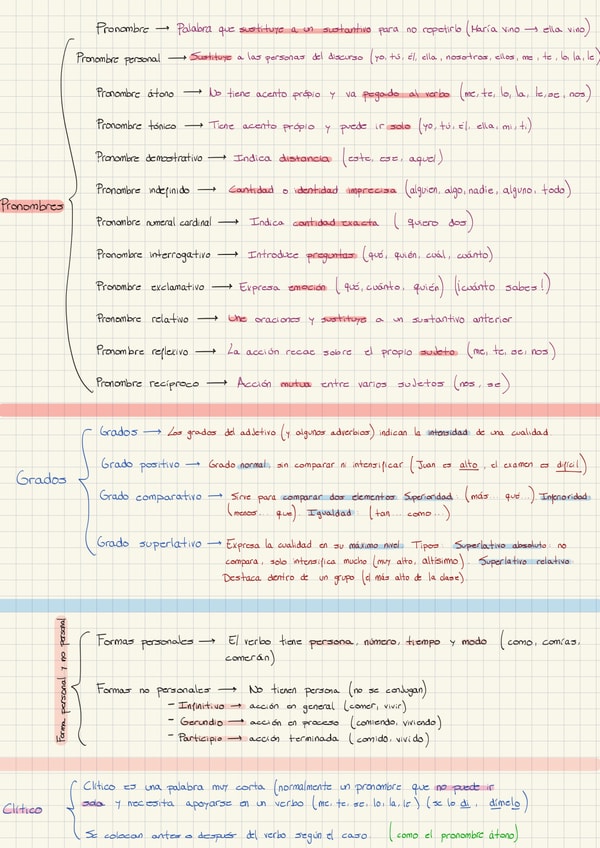 Pronombre → Palabra que sustituye a un sustantivo para no repetirlo (María vino → ella vino)
Pronombre personal → Sustituye a las personas del discurso (yo, tú, él, ella, nosotros, ellos, me, te, lo, la, le)
Pronombre átono → No tiene acento própio y va pegado al verbo (me, te, lo, la, le, se, nos)
Pronombre tónico → Tiene acento própio y puede ir solo (yo, tú, él, ella, mi, ti)
Pronombre demostrativo → Indica distancia (este, ese, aquel)
Pronombres
Pronombre indefinido → Cantidad o identidad imprecisa (alguien, algo, nadie, alguno, todo)
Pronombre numeral cardinal → Indica cantidad exacta ( quiero dos)
Pronombre interrogativo → Introduce preguntas (qué, quién, cuál, cuánto)
Pronombre exclamativo → Expresa emoción (qué, cuánto, quién) (¡cuánto sabes!)
Pronombre relativo → Une oraciones y sustituye a un sustantivo anterior
Pronombre reflexivo → La acción recae sobre el propio sujeto (me, te, se, nos)
Pronombre recíproco → Acción mutua entre varios sujetos (nos, se)
Grados → Los grados del adjetivo (y algunos adverbios) indican la intensidad de una cualidad.
Grado positivo → Grado normal, sin comparar ni intensificar (Juan es alto, el examen es difícil)
Grados
Grado comparativo → Sirve para comparar dos elementos Superioridad: (más... que...) Inferioridad
(menos... que) Igualdad: (tan... como...)
Grado superlativo → Expresa la cualidad en su máximo nivel. Tipos: Superlativo absoluto: no
compara, solo intensifica mucho (muy alto, altísimo). Superlativo relativo:
Destaca dentro de un grupo (el más alto de la clase)
Forma personal y no personal
Formas personales → El verbo tiene persona, número, tiempo y modo (como, comías,
comerán)
Formas no personales → No tienen persona (no se conjugan)
- Infinitivo → acción en general (comer, vivir)
- Gerundio → acción en proceso (comiendo, viviendo)
- Participio → acción terminada (comido, vivido)
Clítico
Clítico es una palabra muy corta (normalmente un pronombre que no puede ir
sola y necesita apoyarse en un verbo (me, te, se, lo, la, le) (se lo di, dímelo)
Se colocan antes o después del verbo según el caso. (como el pronombre átono)